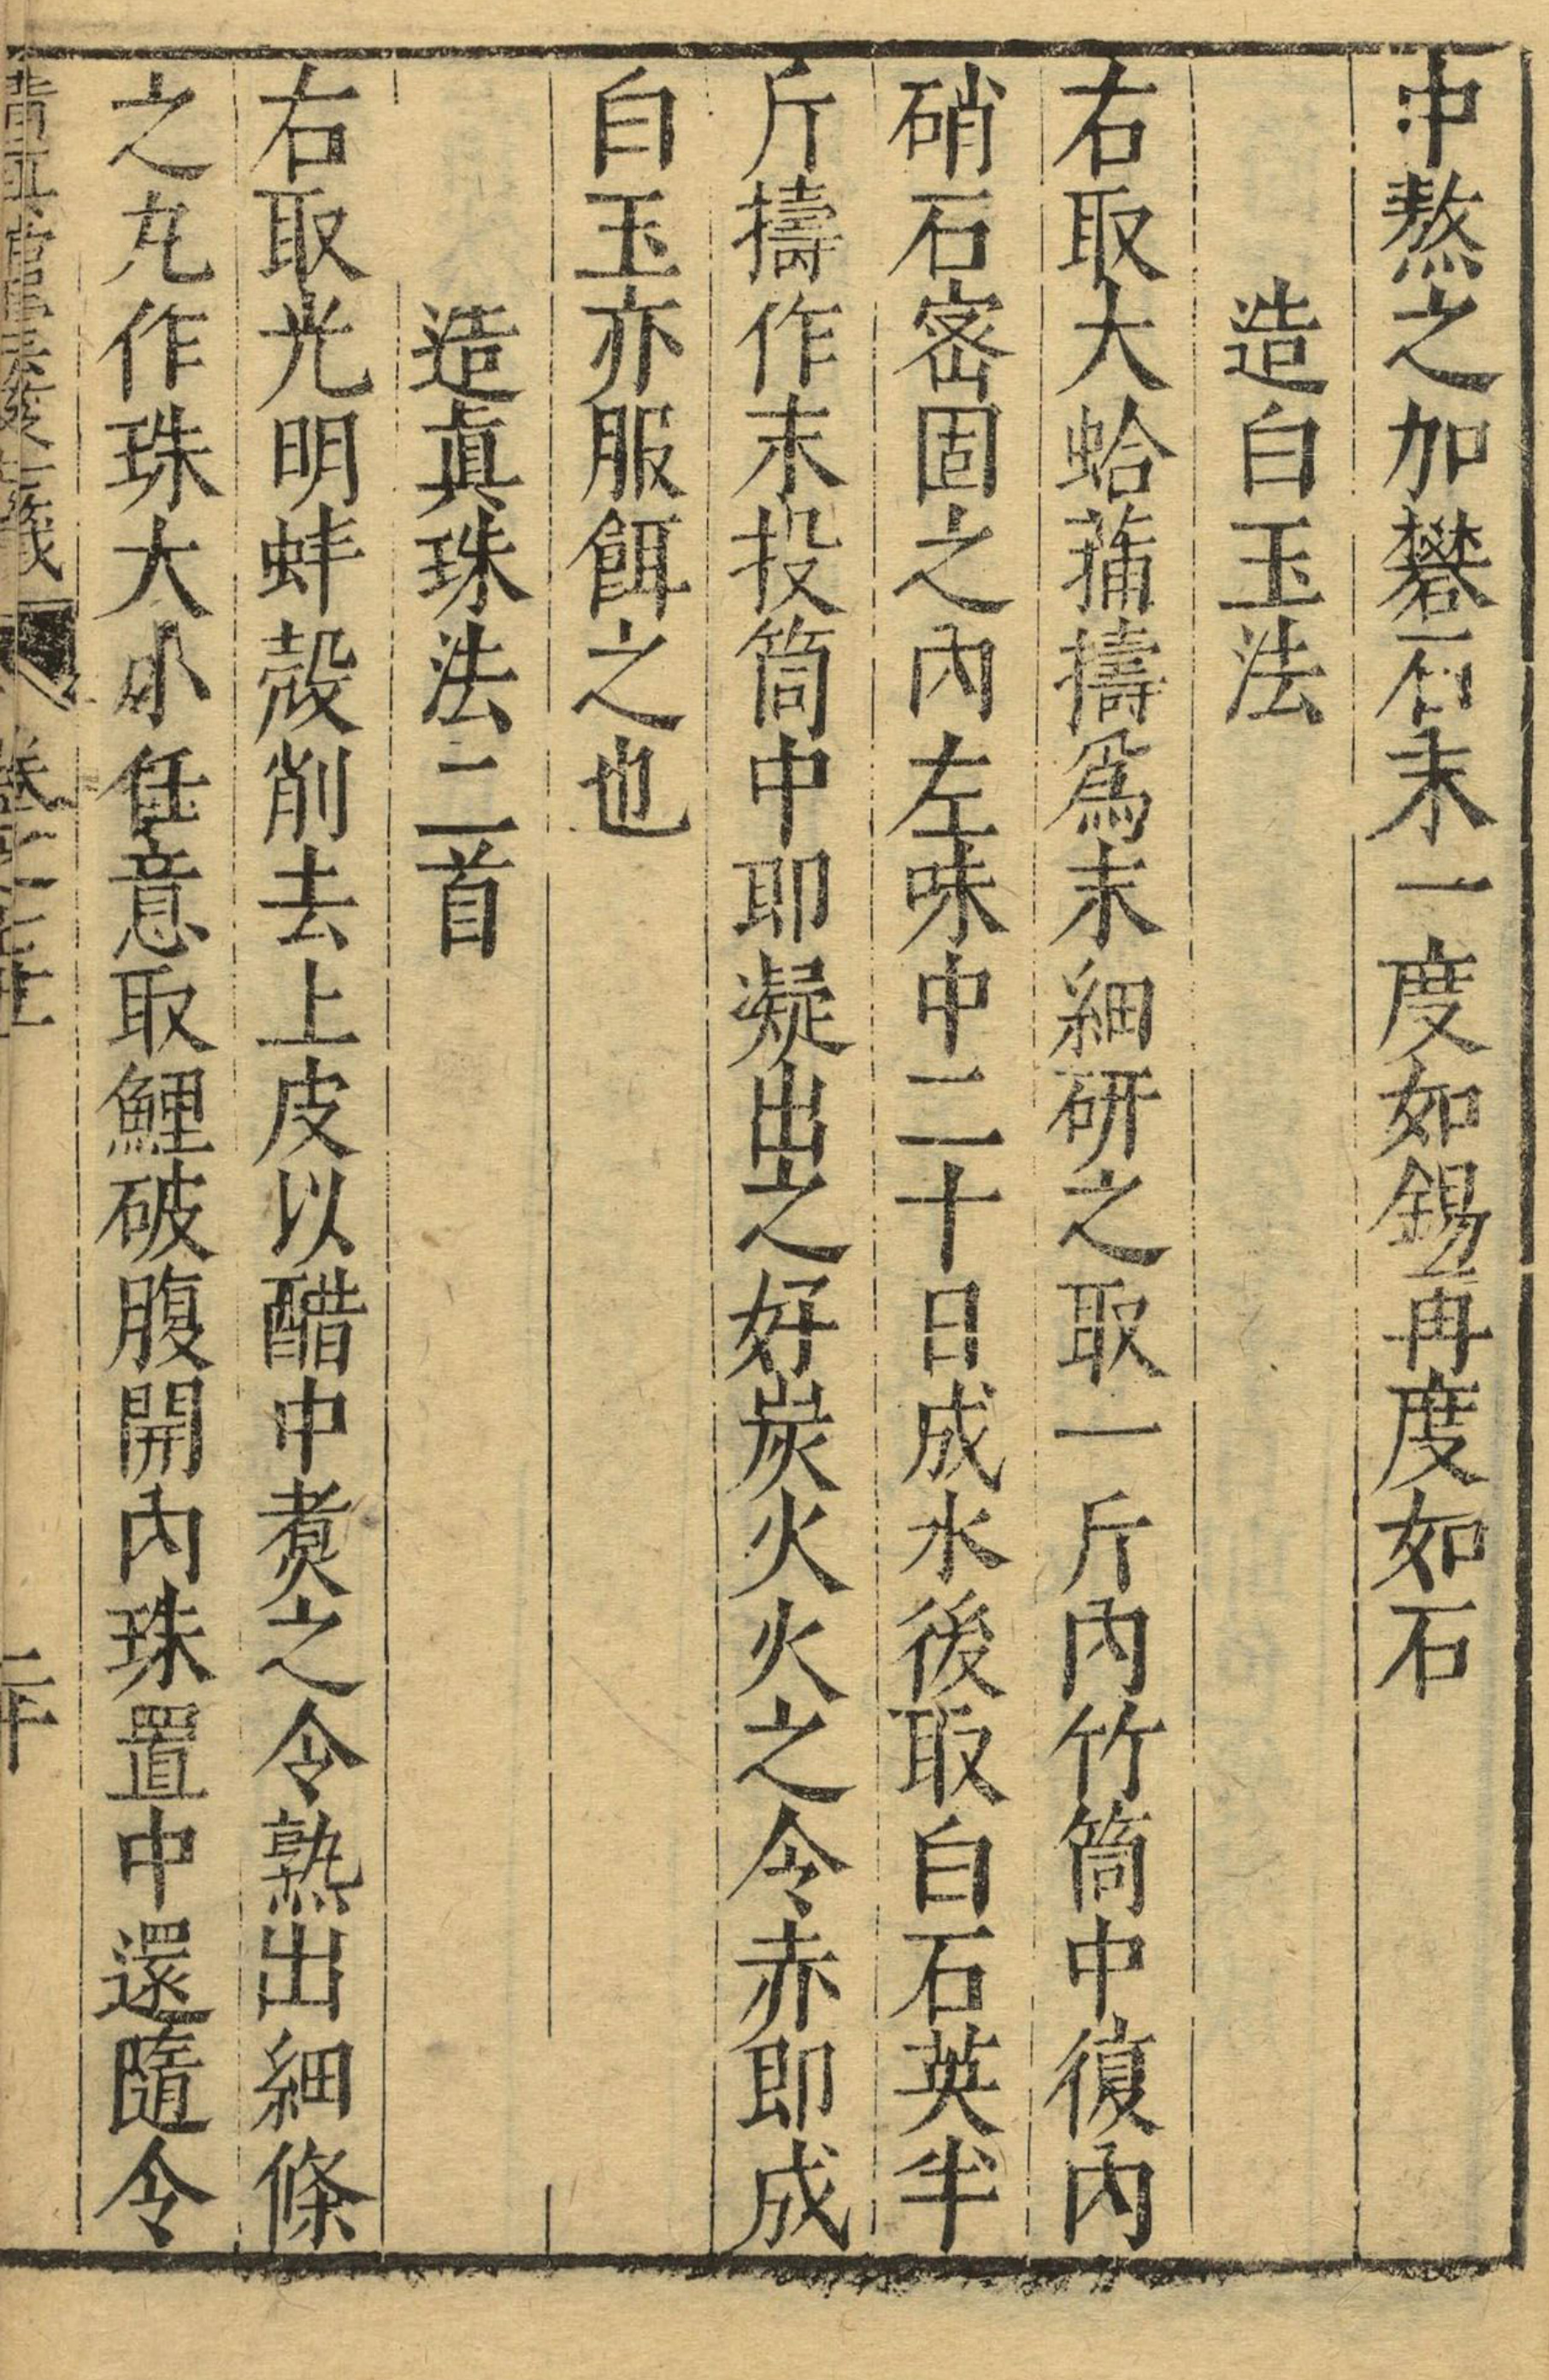 中熬之加礬石末一度如錫再度如石
造白玉法
右取大蛤蒲擣爲末細研之取一斤內竹筒中復內
硝石密固之內左味中二十日成水後取白石英半
斤擣作末投筒中即凝出之好炭火火之令赤即成
白玉亦服餌之也
造眞珠法二首
右取光明蚌殼削去上皮以醋中煑之令熟出細條
之丸作珠大小任意取鯉破腹開內珠置中還隨令
卷之七十一
二十